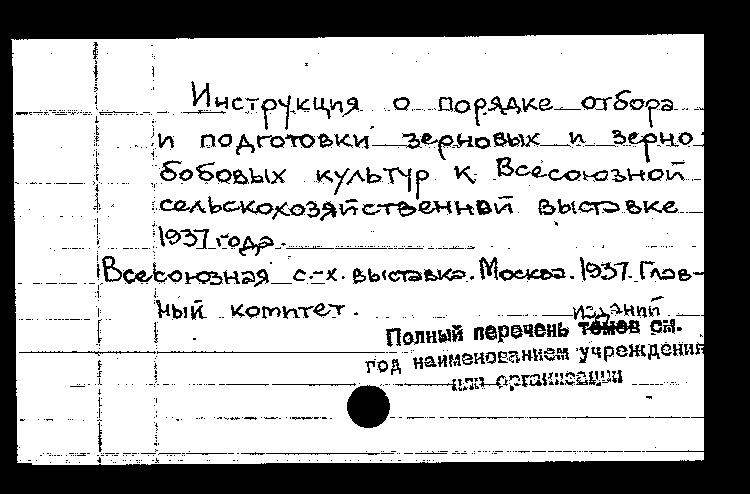 Инструкция о порядке отбора
и подготовки зерновых и зерно-
бобовых культур к Всесоюзной
сельскохозяйственной выставке
1937 года.
Всесоюзная с.-х. выставка. Москва. 1937. Глав-
ный комитет.
изданий
Полный перечень томов см.
под наименованием учреждения
или организации